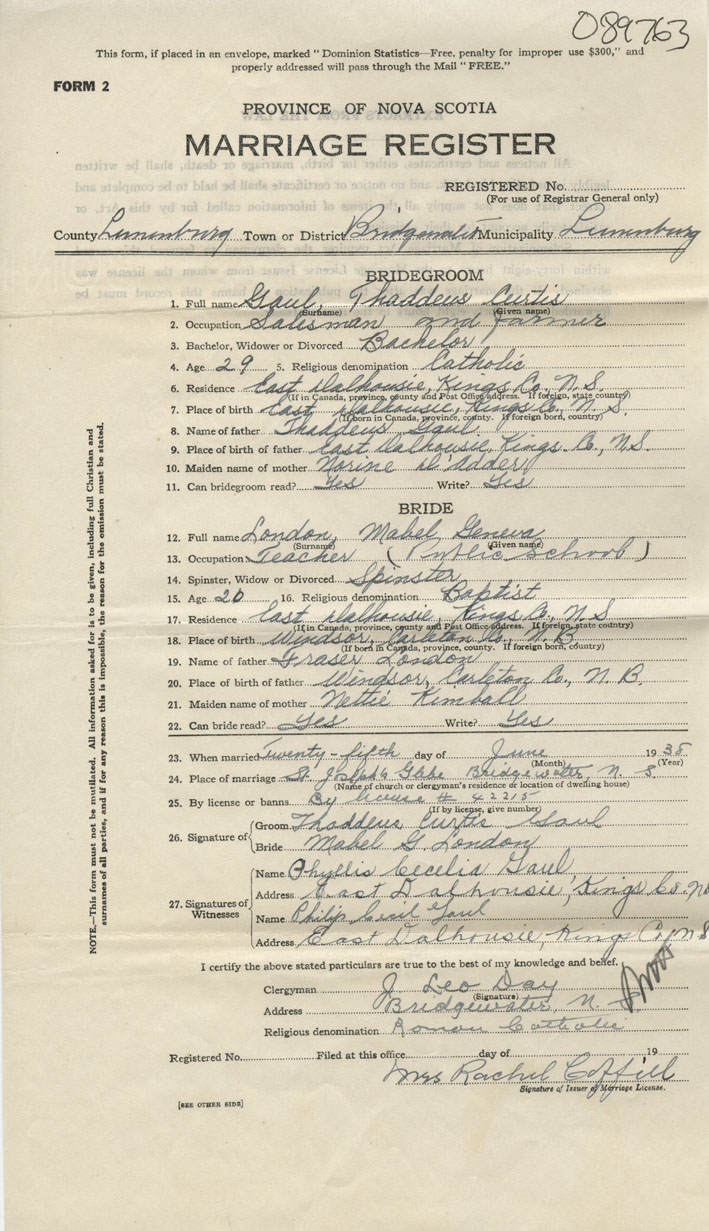 089763
This form, if placed in an envelope, marked "Dominion Statistics—Free, penalty for improper use $300," and
properly addressed will pass through the Mail "FREE."
FORM 2
PROVINCE OF NOVA SCOTIA
MARRIAGE REGISTER
REGISTERED No.
(For use of Registrar General only)
County Lunenburg Town or District Bridgewater Municipality Lunenburg
BRIDEGROOM
1. Full name Gaul, Thaddeus Curtis
(Surname) (Given name)
2. Occupation Salesman and farmer
3. Bachelor, Widower or Divorced Bachelor
4. Age 29 5. Religious denomination Catholic
6. Residence East Dalhousie, Kings Co., N. S.
(If in Canada, province, county and Post Office address. If foreign, state country)
7. Place of birth East Dalhousie, Kings Co., N. S.
(If born in Canada, province, county. If foreign born, country)
8. Name of father Thaddeus Gaul
9. Place of birth of father East Dalhousie, Kings Co., N.S.
10. Maiden name of mother Norine d'Adder
11. Can bridegroom read? Yes Write? Yes
BRIDE
12. Full name London, Mabel Geneva
(Surname) (Given name)
13. Occupation Teacher (Public School)
14. Spinster, Widow or Divorced Spinster
15. Age 20 16. Religious denomination Baptist
17. Residence East Dalhousie, Kings Co., N. S
(If in Canada, province, county and Post Office address. If foreign, state country)
18. Place of birth Windsor, Carleton Co., N. B
(If born in Canada, province, county. If foreign born, country)
19. Name of father Fraser London
20. Place of birth of father Windsor, Carleton Co., N. B.
21. Maiden name of mother Nettie Kimball
22. Can bride read? Yes Write? Yes
23. When married Twenty-fifth day of June 1935
(Month) (Year)
24. Place of marriage St. Joseph's Glebe Bridgewater, N. S
(Name of church or clergyman's residence or location of dwelling house)
25. By license or banns By license #
(If by license, give number)
26. Signature of Groom Thaddeus Curtis Gaul
Bride Mabel G. London
27. Signatures of Witnesses Name Phyllis Cecelia Gaul
Address East Dalhousie, Kings Co. NS
Name Philip Cecil Gaul
Address East Dalhousie, Kings Co., N S
I certify the above stated particulars are true to the best of my knowledge and belief.
Clergyman J. Leo Day
(Signature)
Address Bridgewater, N. S
Religious denomination Roman Catholic
Registered No. Filed at this office day of 19
Mrs Rachel Coffill
Signature of Issuer of Marriage License.
[SEE OTHER SIDE]
NOTE.—This form must not be mutilated. All information asked for is to be given, including full Christian and
surnames of all parties, and if for any reason this is impossible, the reason for the omission must be stated.